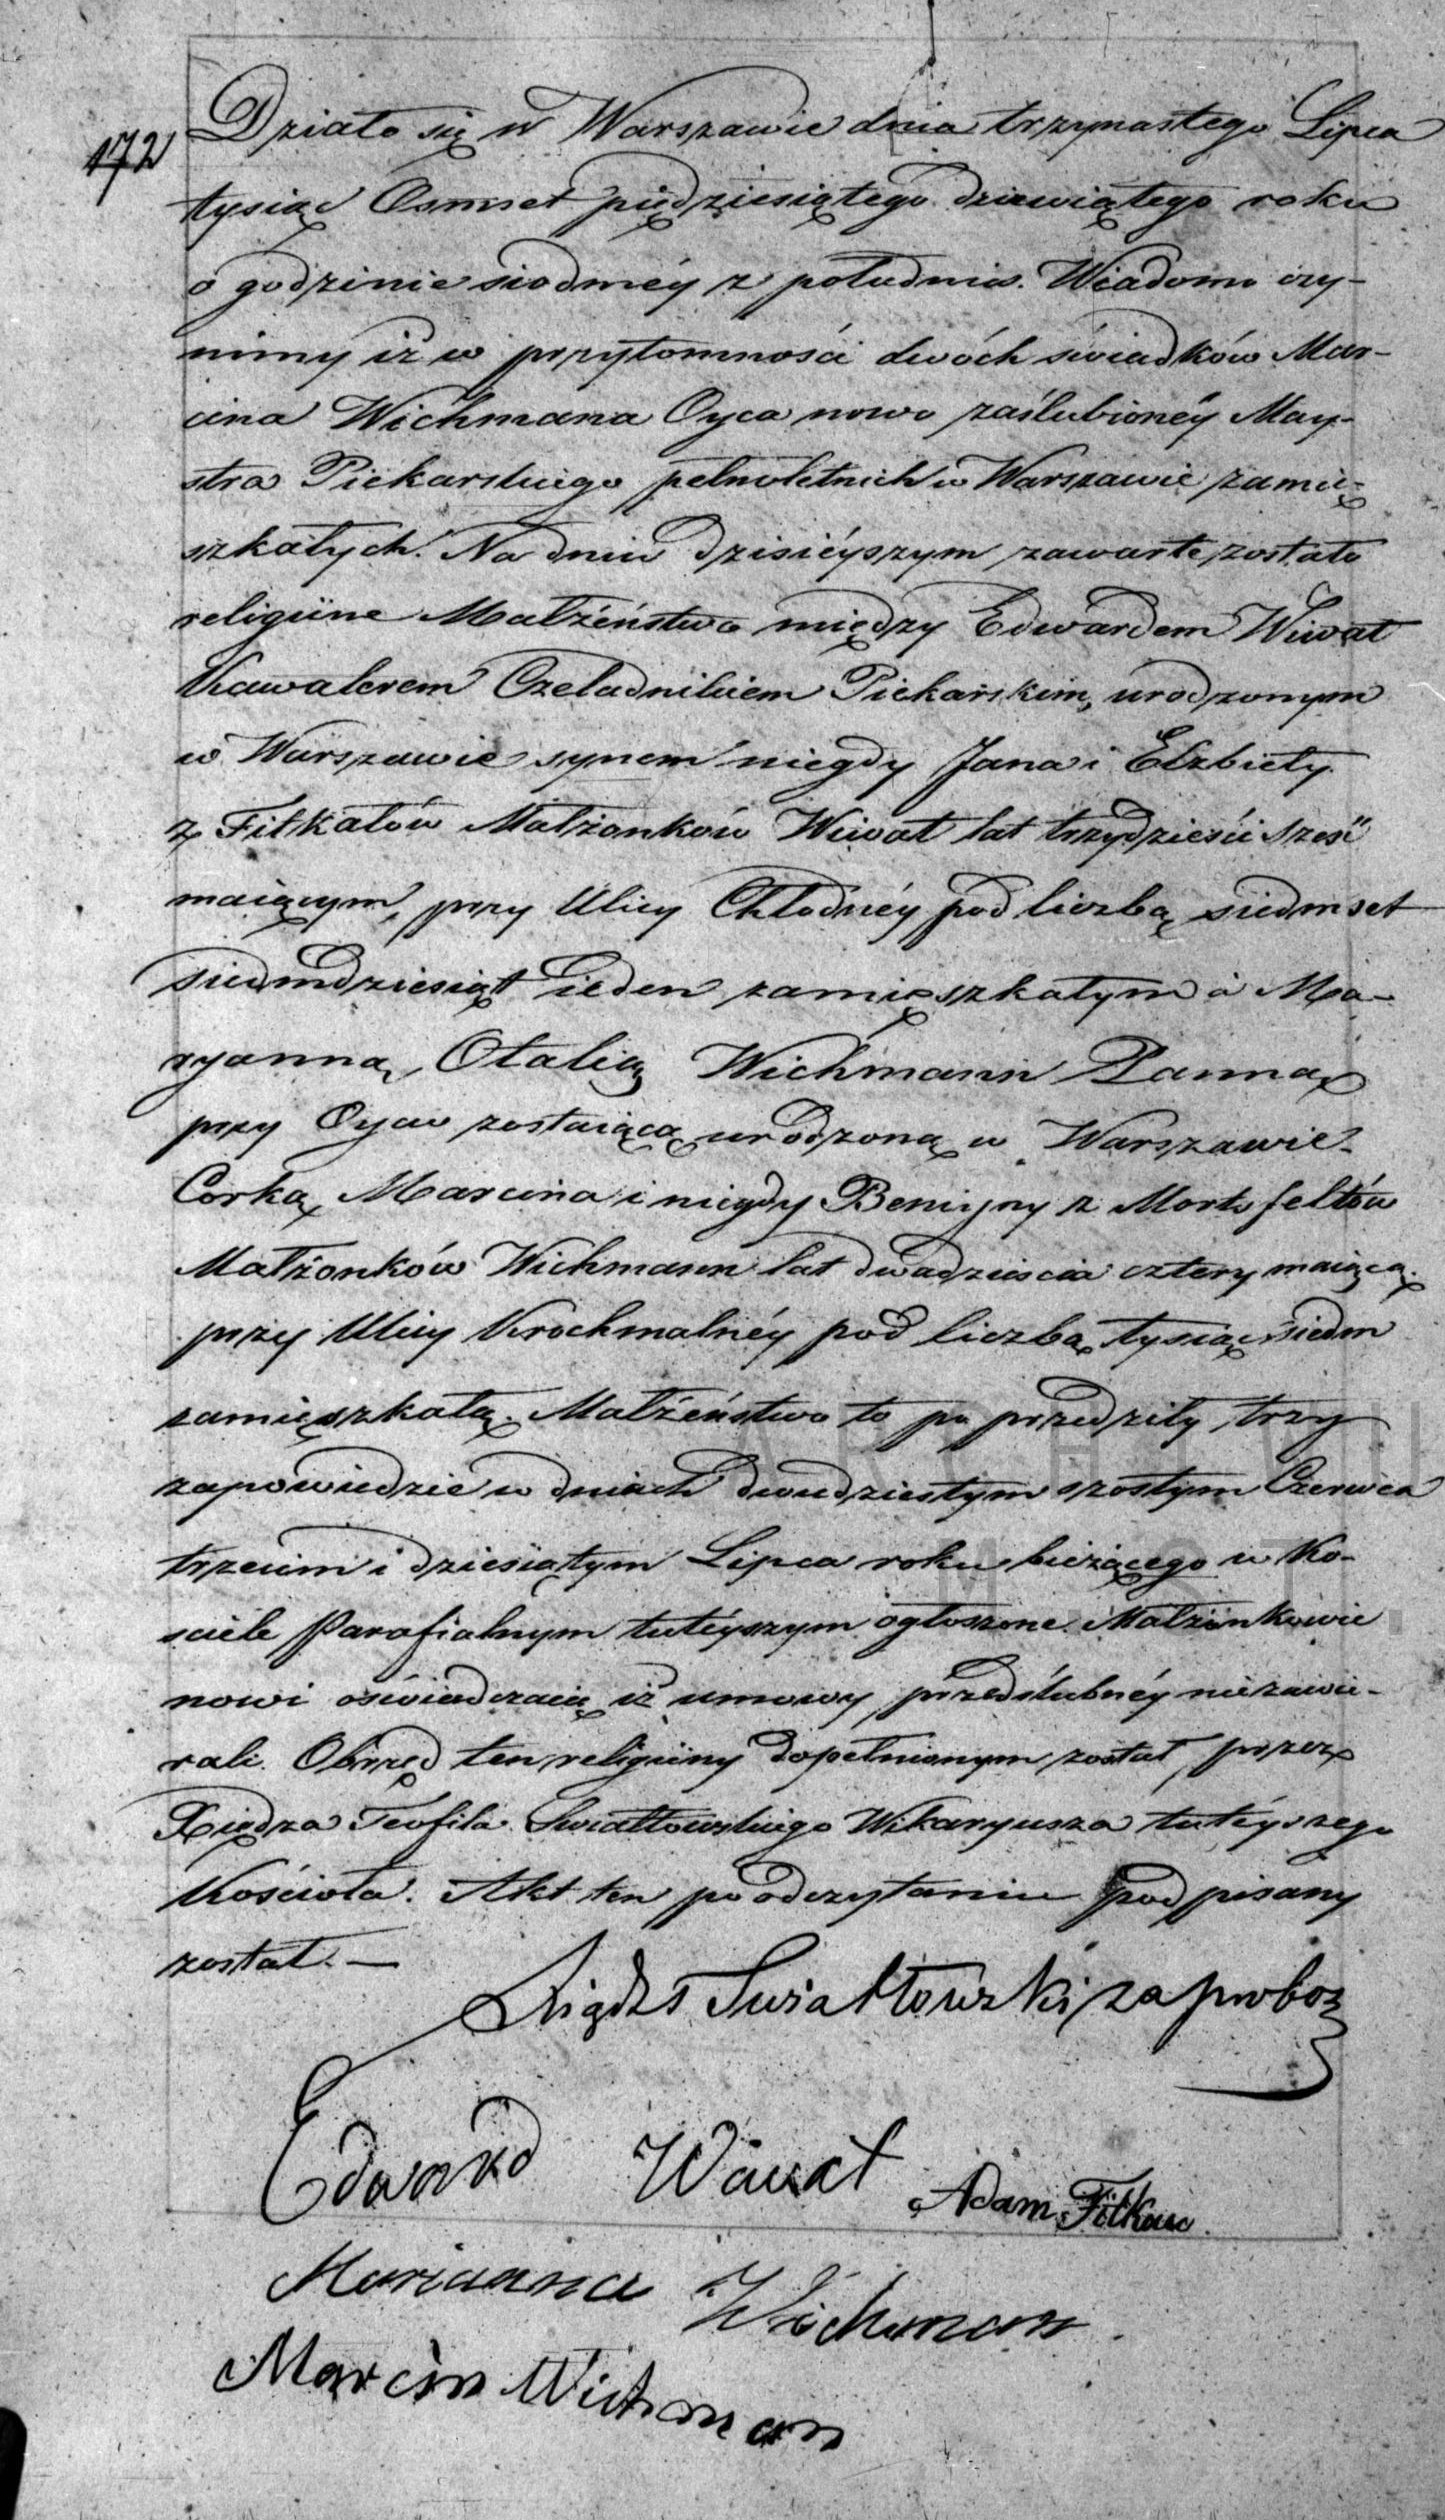 172
Działo się w Warszawie dnia trzynastego Lipca
tysiąc Osmset piędziesiątego dziewiątego roku
o godzinie siodméy z południa. Wiadomo czy-
nimy iż w przytomności dwóch świadków Mar-
cina Wichmana Oyca nowo zaślubionéy May-
stra Piekarskiego pełnoletnich w Warszawie zamię-
szkałych. Na dniu dzisiéyszym zawarte zostało
religiine Małżéństwo między Edwardem Wiwat
Kawalerem Czeladnikiem Piekarskim, urodzonym
w Warszawie synem niegdy Jana i Elzbiety
z Fitkałów Małżonków Wiwat lat trzydzieści sześć
maiącym, przy Ulicy Chłodnéy pod liczbą siedmset
siedmdziesiąt ieden zamięszkałym a Ma-
ryanną, Otalią Wichmann Panną
przy Oycu zostaiącą urodzoną w Warszawie
Corką Marcina i niegdy Benigny z Morts feltów
Małżonków Wichmann lat dwadzieścia cztery maiącą
przy Ulicy Krochmalnéy pod liczbą tysiąc siedm
zamięszkałą. Małżéństwo to po przedziły trzy
zapowiedzie w dniach dwudziestym szóstym Czerwca
trzecim i dziesiątym Lipca roku bieżącego w Ko-
sciele Parafialnym tutéyszym ogłoszone. Małżonkowie
nowi oświadczaią iż umowy przedślubnéy nie zawie-
rali. Obrzęd ten religiiny dopełnionym został przez
Xiędza Teofila Swiałtowskiego Wikaryusza tutéyszego
Kościoła. Akt ten po odczytaniu podpisany
został. —
Xiądz Swiałtowski za probosz
Edward Wiwat
Adam
Marianna Wichman
Marcin Wichman
ARCHIWU
M. ST.